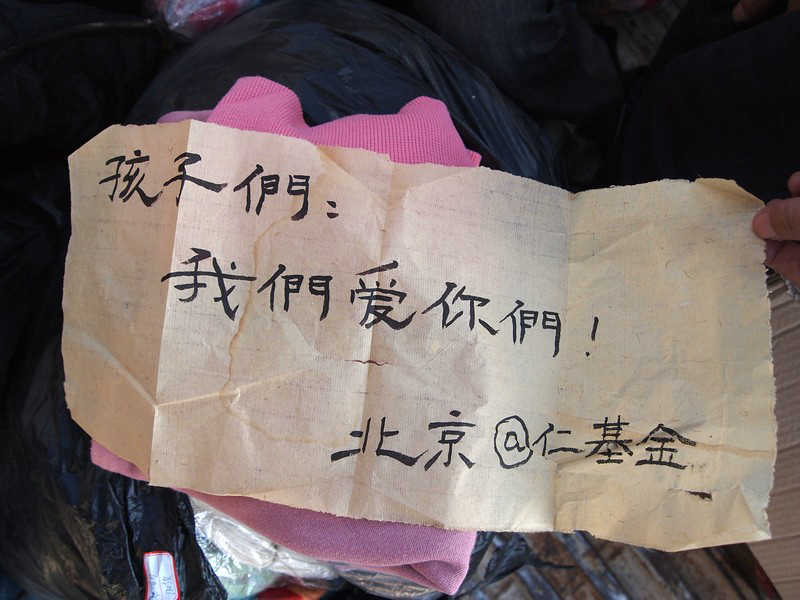 孩子們：
我們爱你們！
北京@仁基金